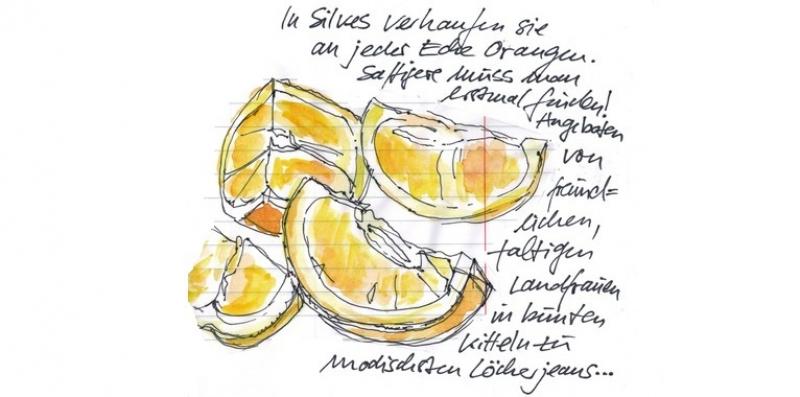 In Silves verkaufen sie
an jeder Ecke Orangen.
Saftigere muss man
erstmal finden!
Angeboten
von
freund=
lichen,
faltigen
Landfrauen
in bunten
Kitteln zu
modischsten Löcherjeans...